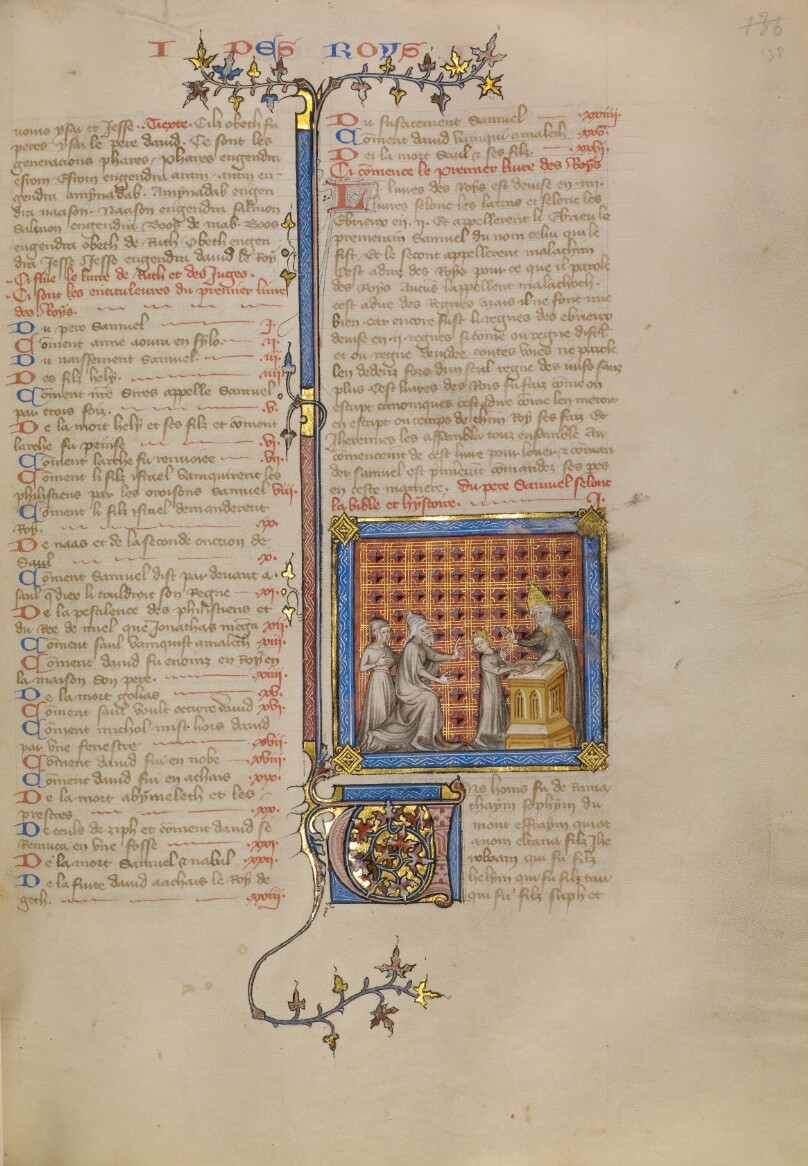 I DES ROYS
136
138
noms ysai et Jesse. Texte. Cilz obeth fu
peres ysai le pere david. Ce sont les
generacions phares. phares engendra
esrom. Esrom engendra aram. aram en
gendra amynadab. Amynadab engen
dra naason. Naason engendra salmon
Salmon engendra Booz de raab. Boos
engendra obeth de Ruth Obeth engen
dra Jesse Jesse engendra david le Roy
Ci fine le livre de Ruth et des Juges.
Ci sont les entituleures du premier livre
des Roys.
Du pere Samuel .i.
Coment anne aoura en sylo. .ii.
Du naissement Samuel. .iii.
Des filz hely. .iiii.
Coment nre Sires appelle Samuel
par trois foiz. .v.
De la mort hely et ses filz et coment
larche fu prinse .vi.
Coment larche fu renvoiee .vii.
Coment li filz israel vainquirent les
philistiens par les oroisons Samuel viii.
Coment li filz israel demanderent
Roy. .ix.
De naas et de la seconde onction de
Saul .x.
Coment Samuel dist par devant a
saul q dieu li touldroit son Regne .xi.
De la pestilence des philistiens et
du Ree de miel que Jonathas menga xii.
Coment saul vainquist amalech .xiii.
Coment david fu enoinz en Roy en
la maison son pere. .xiiii.
De la mort golias .xv.
Coment saul voult occirre david .xvi.
Coment michol mist hors david
par une fenestre .xvii.
Coment david fui en nobe .xviii.
Coment david fui en achais .xix.
De la mort abymelech et les
prestres .xx.
De ceuls de ziph et coment david se
remuca en une fosse .xxi.
De la mort Samuel & nabal .xxii.
De la fuite david a achais le Roy de
geth. .xxiii.
Du suscitement Samuel .xxiiii.
Coment david vainqui amalech .xxv.
De la mort Saul & ses filz. .xxvi.
Ci comence le premier livre des Roys
Li livres des Roys est devise en .iiii.
livres selonc les latins et selonc les
Ebrieux en .ii. Et appellerent li Ebrieu le
premerain Samuel du nom celui qui le
fist. Et le secont appellerent malachim
cest a dire des Roys pour ce que il parole
des Roys. Aucun lappellent malachoth.
cest a dire des Regnes mais il ne font mie
bien. car encore fust li regnes des ebrieux
devise en .ii. regnes
et ou regne de iudee toutes voies ne parole
len dedenz fors dun seul regne des iuifs sanz
plus. Cest livres des Rois fu faiz come on
escript canoniques cest a dire come len metoit
en escript ou temps de chascun Roy ses faiz Et
Jherelmes les assembla touz ensemble Au
commencement de cest livre pour loer & coman
der samuel est premiers comandez ses pes
en ceste maniere. Du pere Samuel selonc
la bible et hystoire. .I.
Uns homs fu de Rama
thaym sophym du
mont effraym qui ot
a nom elcana filz Jhe
roboam qui fu filz
helyu qui fu filz tau
qui fu filz suph et